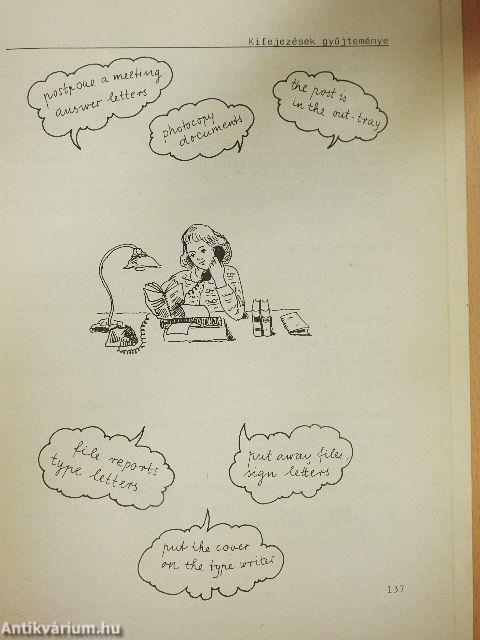 Kifejezések gyűjteménye
postpone a meeting
answer letters
photocopy
documents
the post is
in the out-tray
file reports
type letters
put away files
sign letters
put the cover
on the type writer
137
Antikvárium.hu